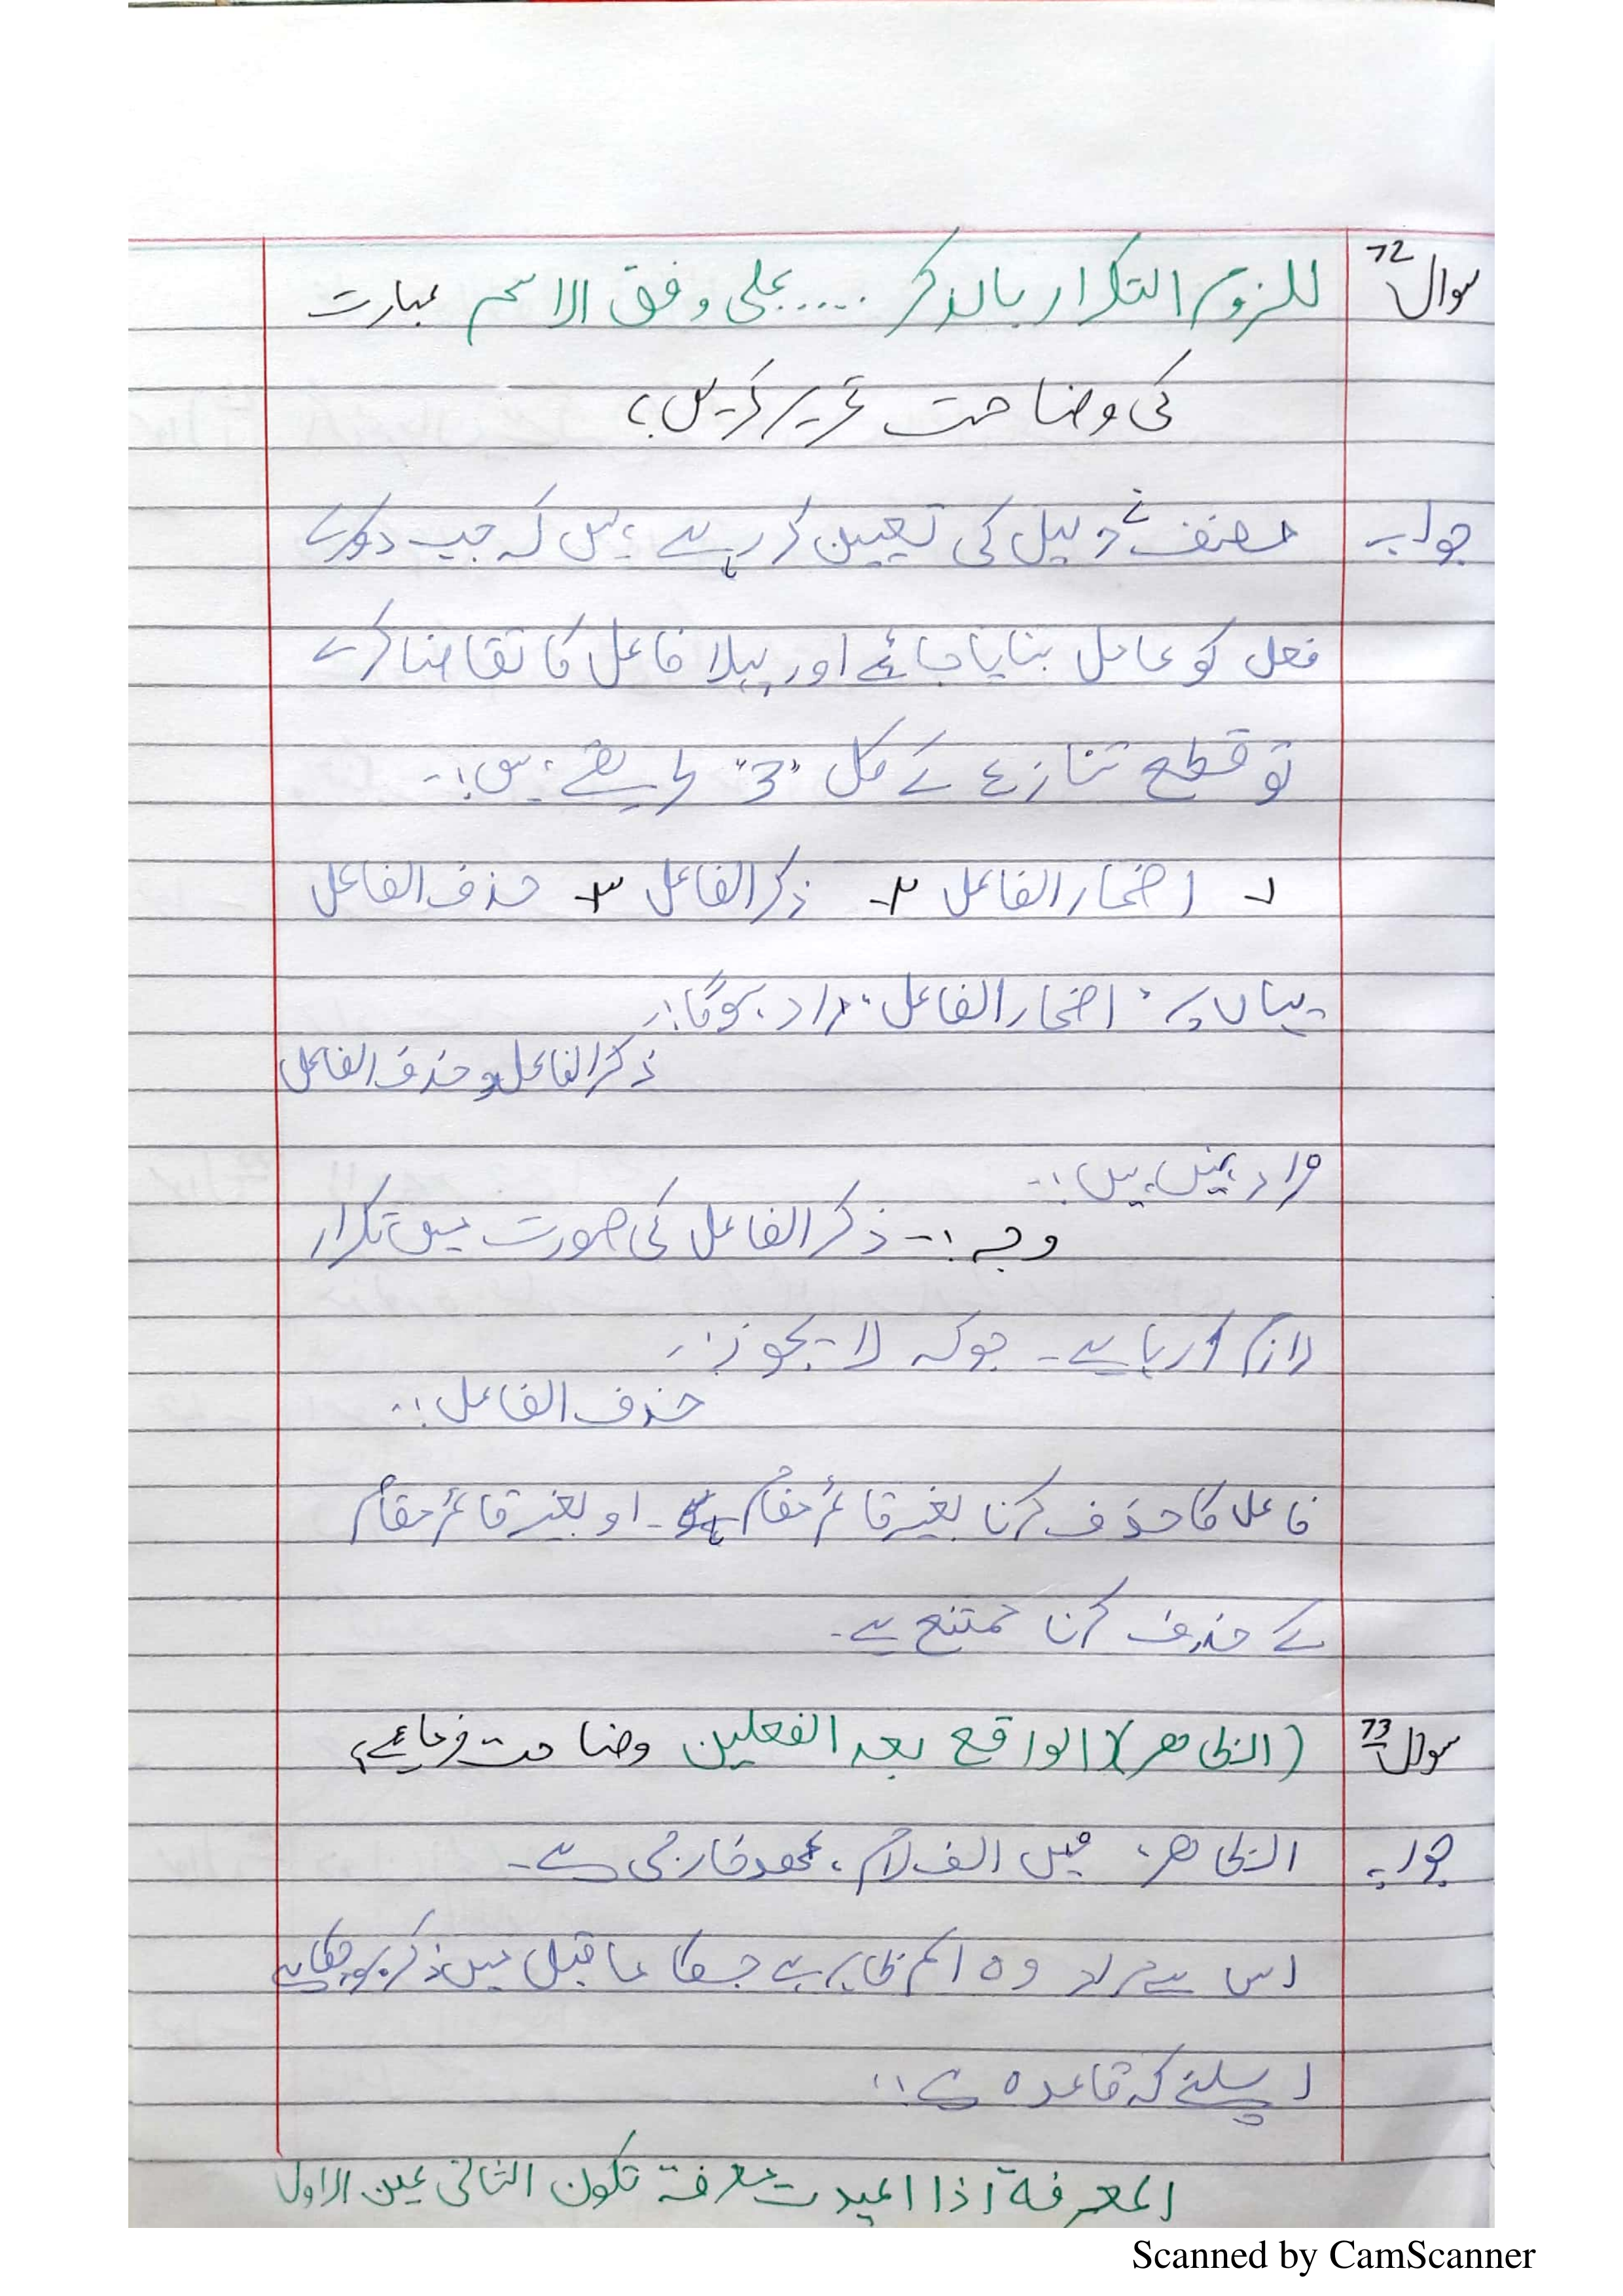 سوال 72 للزوم التکرار بالذکر ..... علی وفق الاسم عبارت
کی وضاحت تحریر کریں؟
جواب مصنف نے دلیل کی تعیین کر رہے ہیں کہ جب دوسرے
فعل کو عامل بنایا جائے اور پہلا فاعل کا تقاضا کرے
تو قطع تنازع کے کل "3" طریقے ہیں:-
۱۔ اضمار الفاعل ۲۔ ذکر الفاعل ۳۔ حذف الفاعل
یہاں پر "اضمار الفاعل" مراد ہوگا:-
ذکر الفاعل و حذف الفاعل
مراد نہیں ہیں:-
وجہ:- ذکر الفاعل کی صورت میں تکرار
لازم آ رہا ہے۔ جو کہ لا یجوز:-
حذف الفاعل:-
فاعل کا حذف کرنا بغیر قائم مقام ہے۔ او بغیر قائم مقام
کے حذف کرنا ممتنع ہے۔
سوال 73 (الظاهر) الواقع بعد الفعلین وضاحت فرمائے؟
جواب الظاهر، میں الف لام، عھد خارجی ہے۔
اس سے مراد وہ اسم ظاہر ہے جسکا ما قبل میں ذکر ہو چکا ہے
اسلئے کہ قاعدہ ہے:-
المعرفة اذا اعیدت معرفة تکون الثانی عین الاول
Scanned by CamScanner